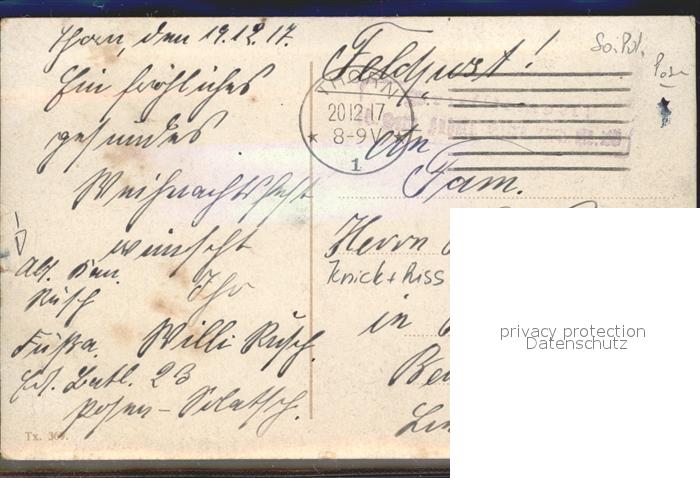 Thorn, den 19.12.17.
Ein fröhliches
gesundes
Weihnachtsfest
wünscht
Ihr
Willi Rusch.
Abs. Kan.
Rusch
Fußa.
Ers. Batl. 23
Posen - Solatsch.
Feldpost!
THORN
20.12.17
8-9V
1
An
Fam.
Herrn
Knick + Riss
in
So. Pol.
Posen
privacy protection
Datenschutz
Tx. 369.